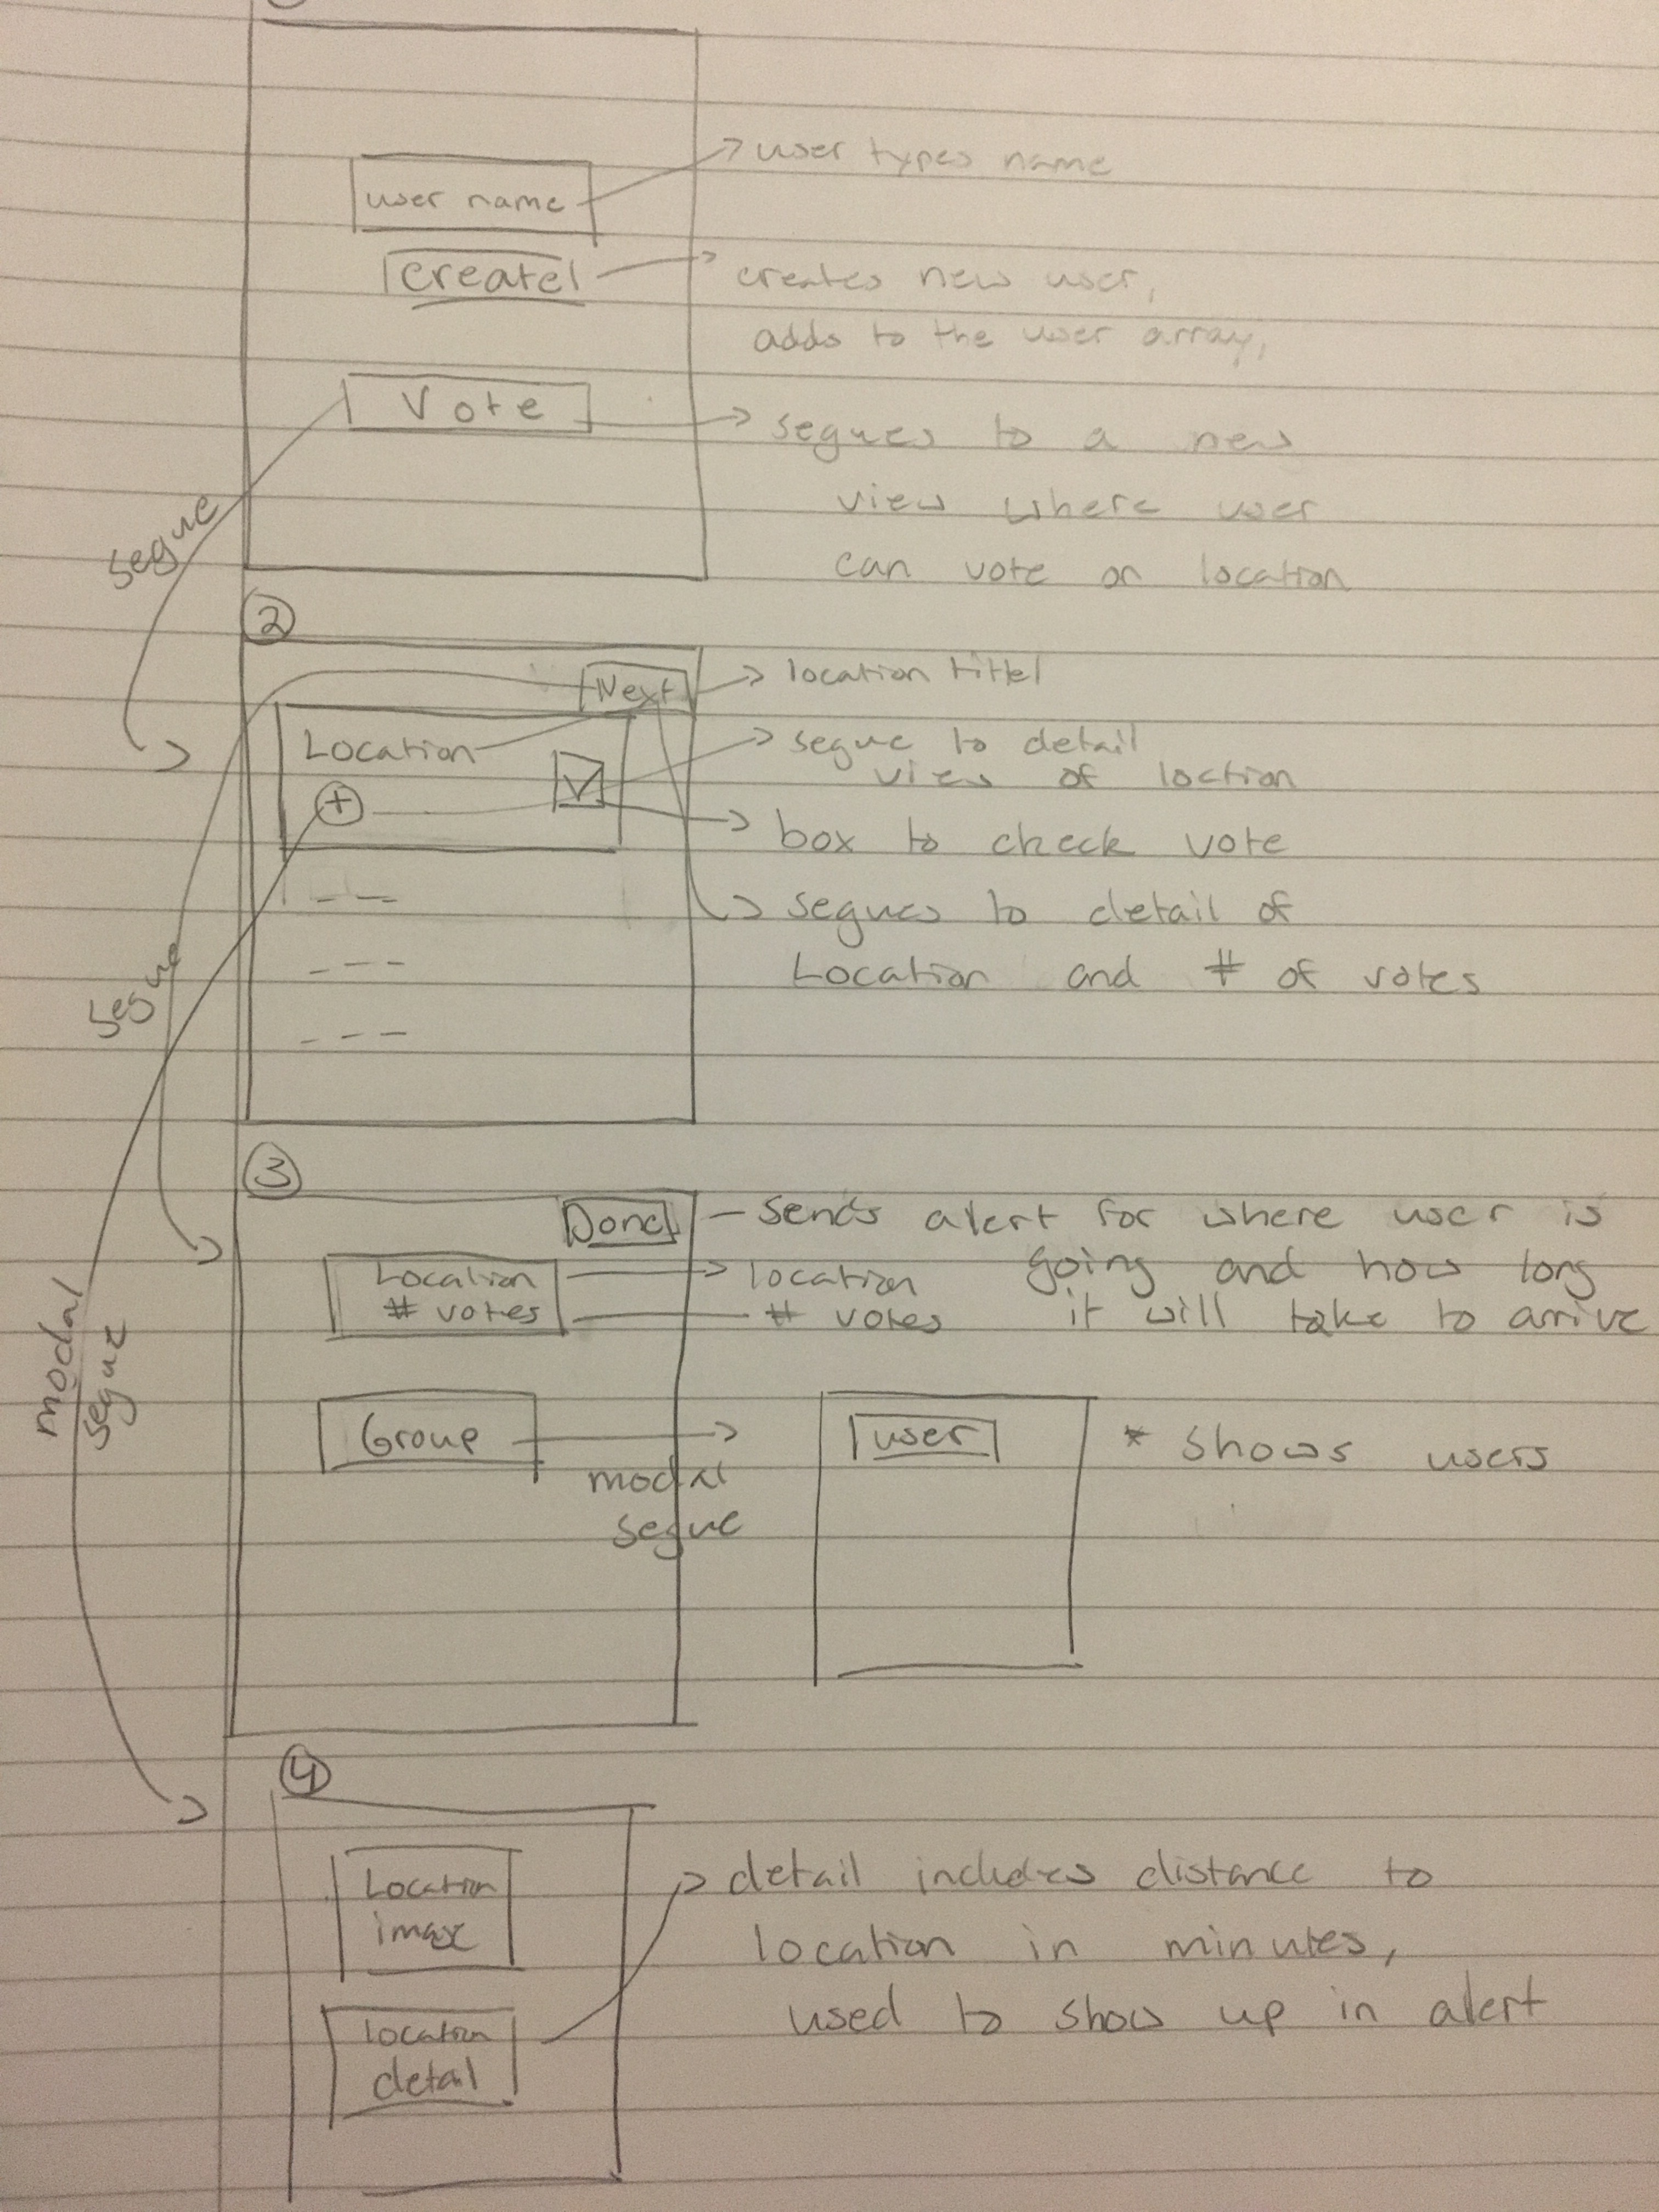 user name
user types name
create
creates new user,
adds to the user array,
Vote
segues to a new
view where user
can vote on location
segue
2
Next
location tittel
Location
segue to detail
view of loction
+
box to check vote
segues to detail of
Location and # of votes
segue
3
Done
- sends alert for where user is
going and how long
it will take to arrive
Location
# votes
location
# votes
modal
segue
Group
modal
segue
user
* shows users
4
Location
image
detail includes distance to
location in minutes,
used to show up in alert
location
detail